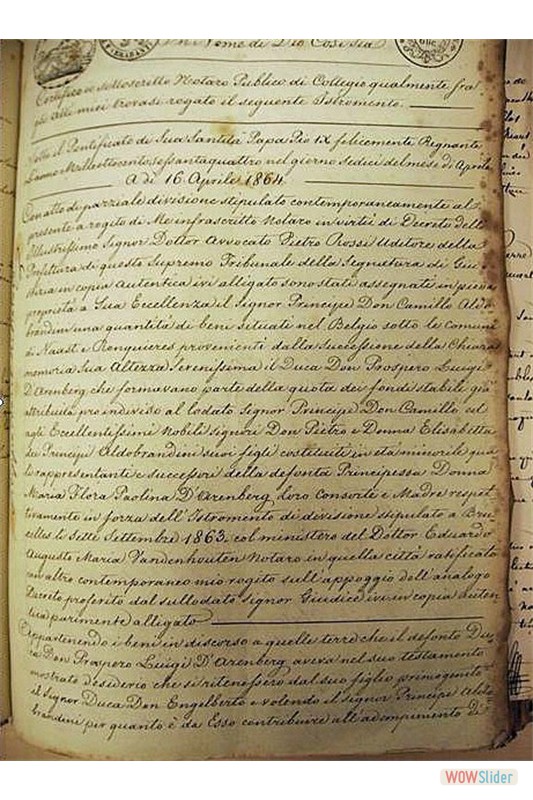 In Nome di Dio Così Sia
Certifico io sottoscritto Notaro Publico di Collegio qualmente fra
gli Atti miei trovasi rogato il seguente Istromento.
Sotto il Pontificato di Sua Santità Papa Pio IX felicemente Regnante
L'anno Milleottocentosessantaquattro nel giorno sedici del mese di Aprile
A dì 16 Aprile 1864
Con atto di parziale divisione stipulato contemporaneamente al
presente a rogito di Me infrascritto Notaro in virtù di Decreto dell'
Illustrissimo Signor Dottor Avvocato Pietro Rossi Uditore della
Prefettura di questo Supremo Tribunale della Segnatura di Giu
stizia in copia Autentica ivi alligato sono stati assegnati in piena
proprietà a Sua Eccellenza il Signor Principe Don Camillo Aldo
brandini una quantità di beni situati nel Belgio sotto le Comuni
di Naast e Ronquieres provenienti dalla Successione della Chiara
memoria Sua Altezza Serenissima il Duca Don Prospero Luigi
D'Arenberg che formavano parte della quota dei fondi stabili già
attribuita pro indiviso al lodato Signor Principe Don Camillo ed
agli Eccellentissimi Nobili Signori Don Pietro e Donna Elisabetta
dei Principi Aldobrandini suoi figli costituiti in età minorile qua
li rappresentanti e successori della defonta Principessa Donna
Maria Flora Paolina D'Arenberg loro consorte e Madre respet
tivamente in forza dell'Istromento di divisione stipulato a Bru
celles li Sette Settembre 1863. col ministero del Dottor Eduardo
Augusto Maria Vandenhouten Notaro in quella città ratificato
con altro contemporaneo mio rogito sull'appoggio dell'analogo
Decreto proferito dal sullodato Signor Giudice ivi in copia auten
tica parimente alligato
Appartenendo i beni in discorso a quelle terre che il defonto Du
ca Don Prospero Luigi D'Arenberg aveva nel suo testamento
mostrato desiderio che si ritenessero dal suo figlio primogenito
il Signor Duca Don Engelberto e volendo il signor Principe Aldo
brandini per quanto è da Esso contribuire all'adempimento di
WOWSlider